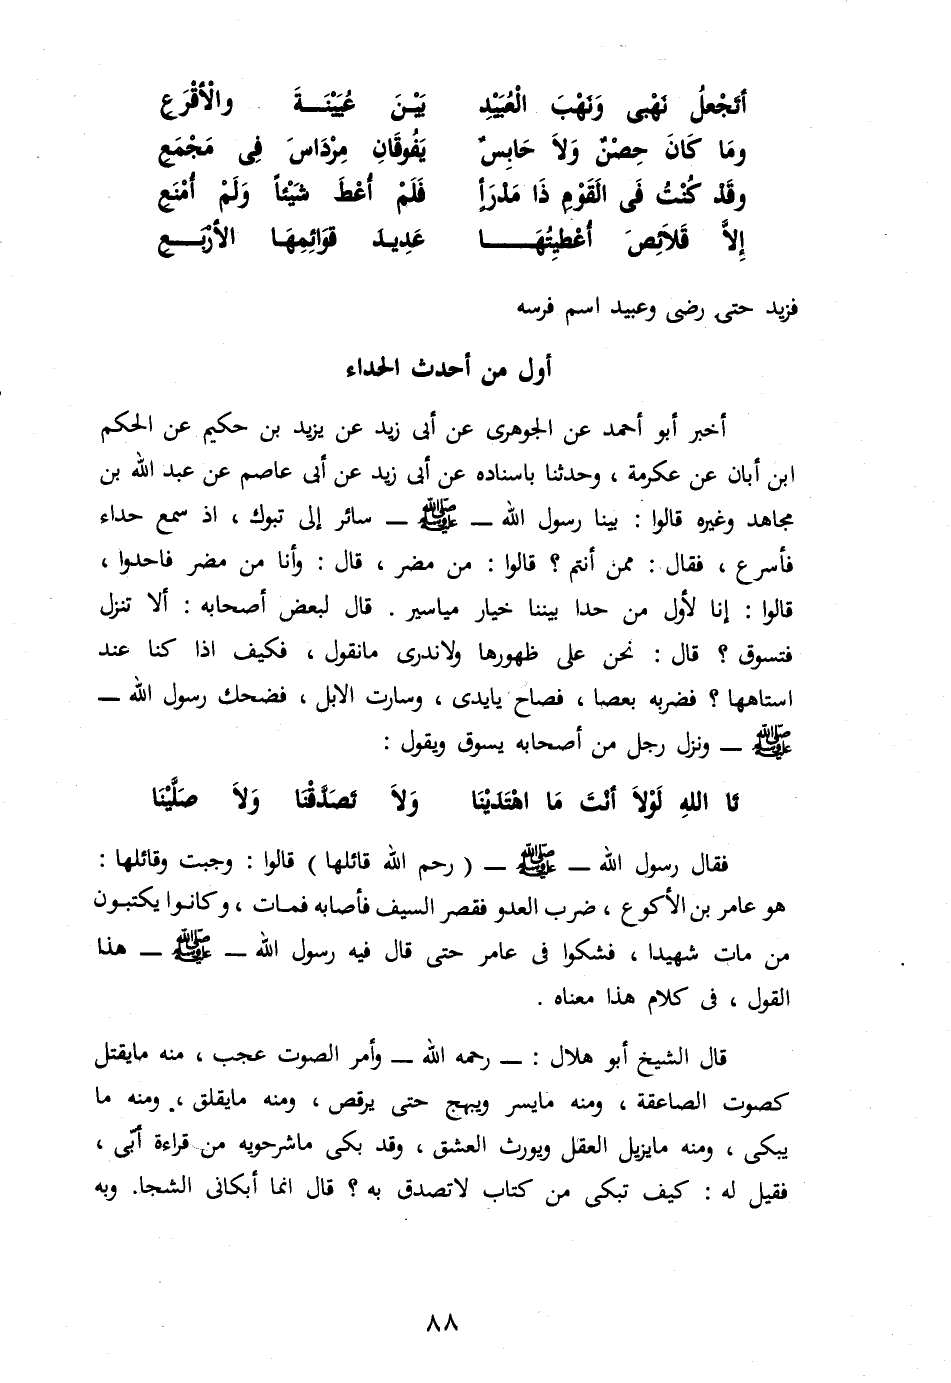 أَتَجْعلُ نَهْبى وَنَهْبَ الْعُبَيْدِ بَيْنَ عُيَيْنَـــةَ والْأَقْرَعِ
وما كَانَ حِصْنٌ وَلاَ حَابِسٌ يَفُوقَانِ مِرْدَاسَ فِى مَجْمَعِ
وقَدْ كُنْتُ فَى القَوْمِ ذَا مَدْرَأٍ فَلَمْ أُعْطَ شَيْئاً وَلَمْ أُمْنَعِ
إلاَّ قَلاَئِصَ أُعْطِيتُهَـــــا عَدِيدَ قوَائِمِهَا الأَرْبَـــعِ
فزيد حتى رضى وعبيد اسم فرسه
أول من أحدث الحداء
أخبر أبو أحمد عن الجوهرى عن أبى زيد عن يزيد بن حكيم عن الحكم
ابن أبان عن عكرمة ، وحدثنا باسناده عن أبى زيد عن أبى عاصم عن عبد الله بن
مجاهد وغيره قالوا : بينا رسول الله ــ ﷺ ــ سائر إلى تبوك ، اذ سمع حداء
فأسرع ، فقال : ممن أنتم ؟ قالوا : من مضر ، قال : وأنا من مضر فاحدوا ،
قالوا : إنا لأول من حدا بيننا خيار مياسير . قال لبعض أصحابه : ألا تنزل
فتسوق ؟ قال : نحن على ظهورها ولاندرى مانقول ، فكيف اذا كنا عند
استاهها ؟ فضربه بعصا ، فصاح يايدى ، وسارت الابل ، فضحك رسول الله ــ
ﷺ ــ ونزل رجل من أصحابه يسوق ويقول :
تَا اللهِ لَوْلاَ أنْتَ مَا اهْتَدَيْنَا وَلاَ تَصَدَّقْنَا وَلاَ صَلَّيْنَا
فقال رسول الله ــ ﷺ ــ ( رحم الله قائلها ) قالوا : وجبت وقائلها :
هو عامر بن الأكوع ، ضرب العدو فقصر السيف فأصابه فمات ، وكانوا يكتبون
من مات شهيدا ، فشكوا فى عامر حتى قال فيه رسول الله ــ ﷺ ــ هذا
القول ، فى كلام هذا معناه .
قال الشيخ أبو هلال : ــ رحمه الله ــ وأمر الصوت عجب ، منه مايقتل
كصوت الصاعقة ، ومنه مايسر ويبهج حتى يرقص ، ومنه مايقلق ، ومنه ما
يبكى ، ومنه مايزيل العقل ويورث العشق ، وقد بكى ماشرحويه من قراءة أبّى ،
فقيل له : كيف تبكى من كتاب لاتصدق به ؟ قال انما أبكانى الشجا. وبه
٨٨